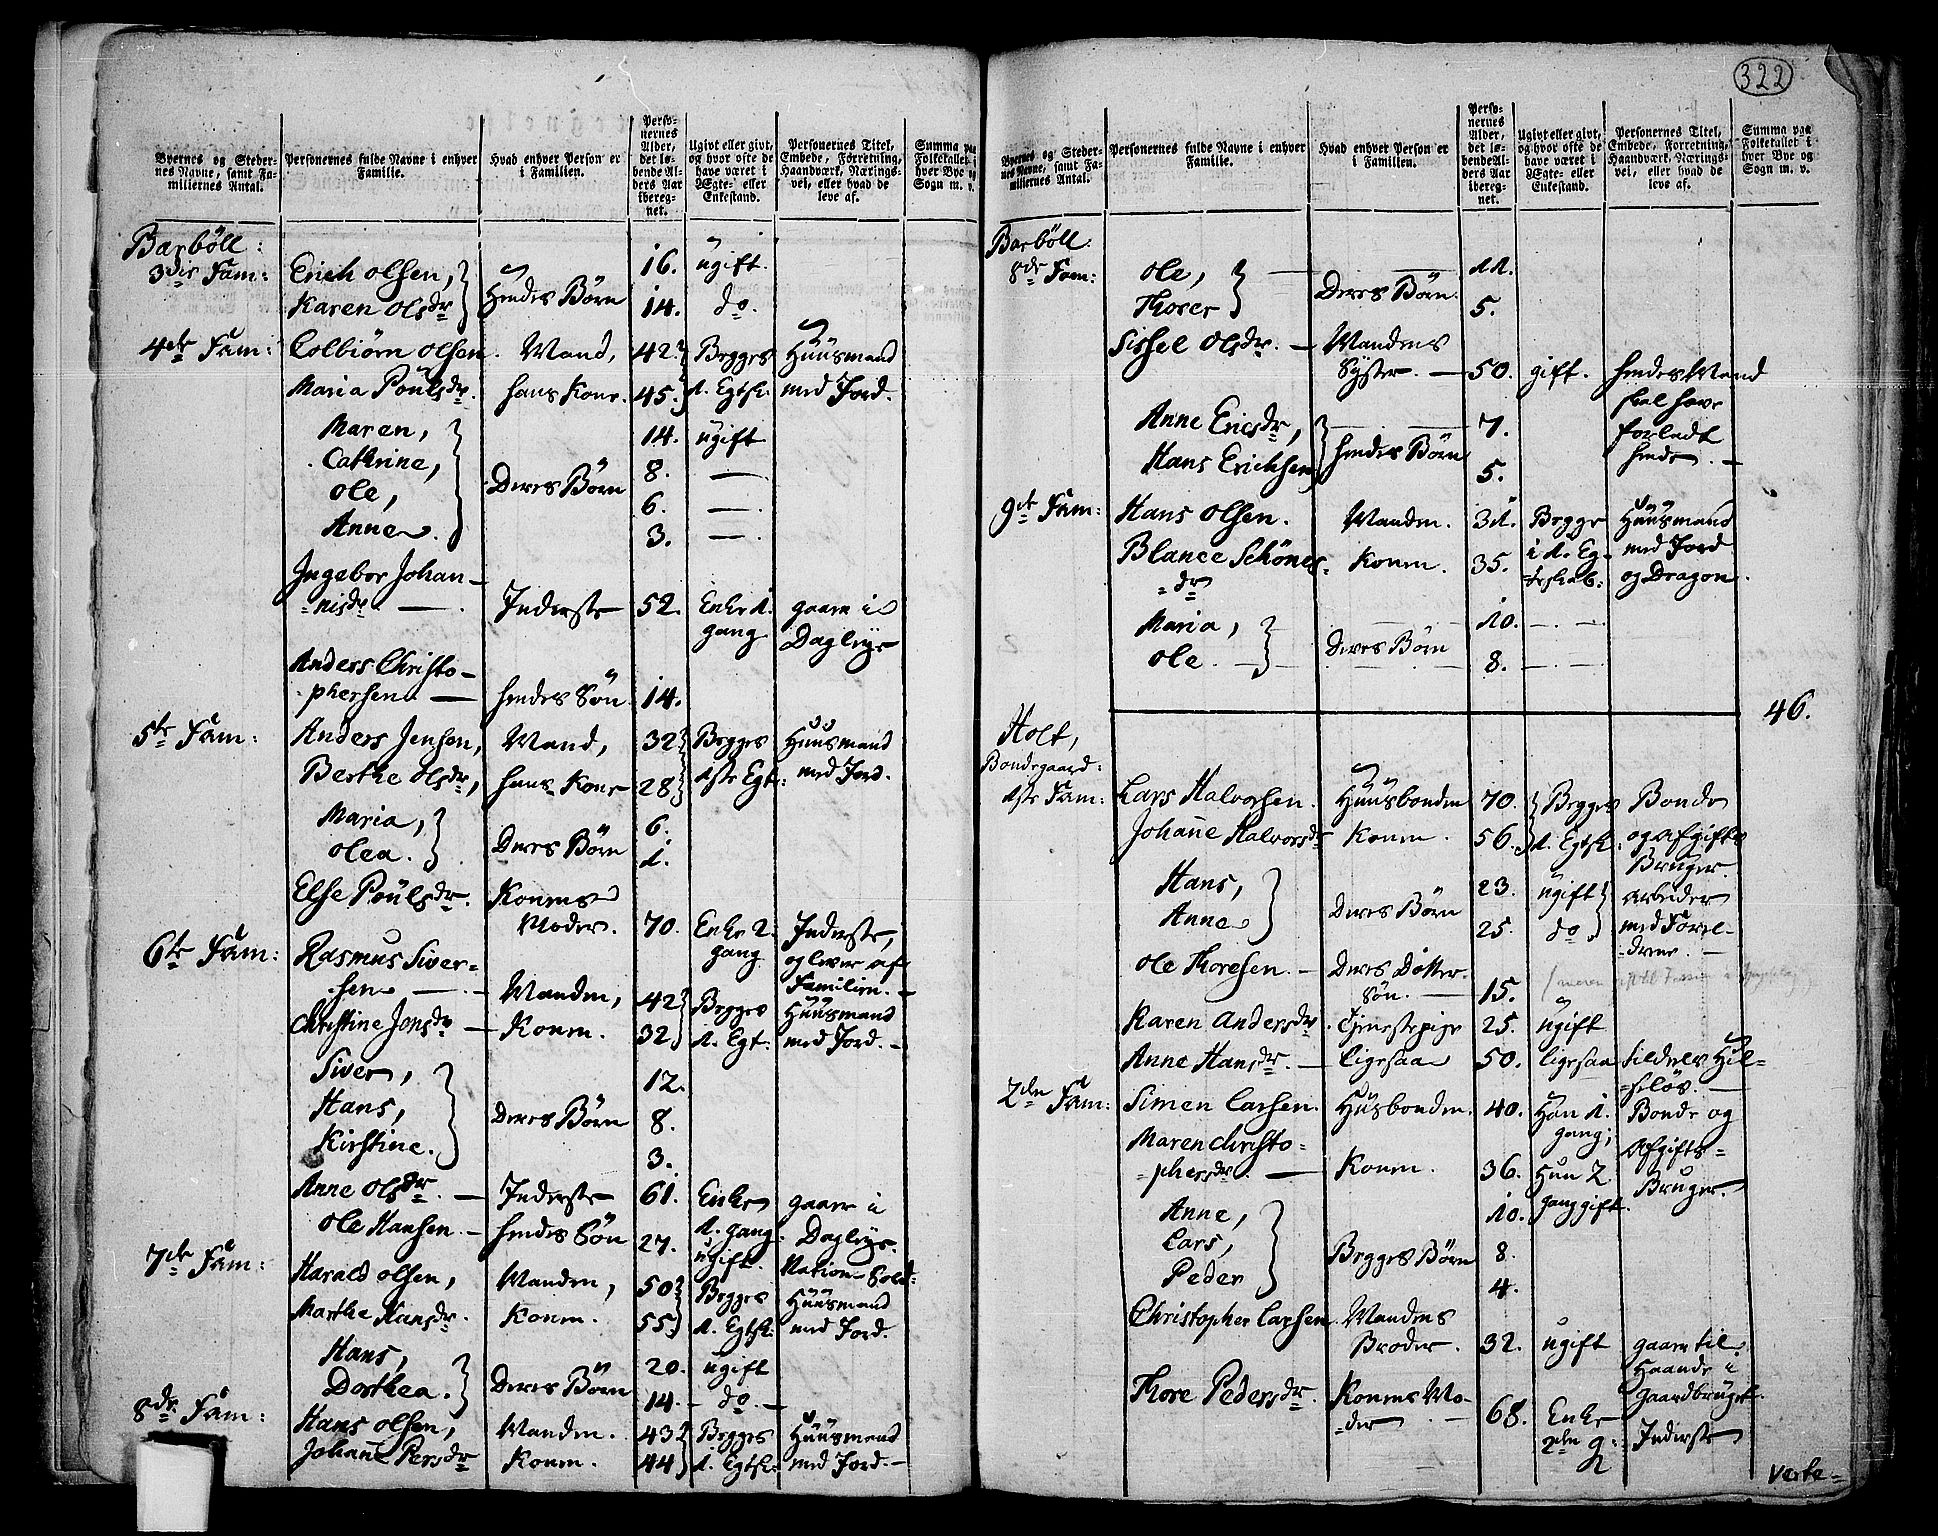 322
Byernes og Steder-
nes Navne, samt Fa-
miliernes Antal.
Personernes fulde Navne i enhver
Familie.
Hvad enhver Person er
i Familien.
Perso-
nernes
Alder,
det lø-
bende Al-
ders Aar
iberegnet.
Ugivt eller givt,
og hvor ofte de
have været i
Ægte- eller
Enkestand.
Personernes Titel,
Embede, Forretning,
Haandværk, Nærings-
vei, eller hvad de
leve af.
Summa paa
Folketallet i
hver Bye og
Sogn m. v.
Barböll:
3die Fam: Erich Olsen, } Hendes Börn 16. ugift.
Karen Olsdr } 14. do.
4de Fam: Colbiørn Olsen. Mand, 42. Begges Huusmand
Maria Poulsdr. hans Kone. 45. 1. Egtsk. med Jord.
Maren, 14. ugift
Cathrine, 8. —
Ole, Deres Börn 6. —
Anne. 3. —
Ingebor Johan-
=nisdr — Inderste 52. Enke 1. gaaer i
gang Dagleye
Anders Christo-
phersen — hendes Sön 14.
5te Fam: Anders Jensen, Mand, 32 Begges Huusmand
Berthe Olsdr, hans Kone 28 1ste Egt: med Jord.
Maria, 6.
Olea. Deres Börn 1.
Else Poulsdr. Konens
Moder. 70. Enke 2. Inderste,
gang og lever af
Familien.
6te Fam: Rasmus Siver-
sen — Manden, 42 Begges Huusmand
Christine Jonsdr — Konen. 32 1. Egt: med Jord. —
Siver, 12.
Hans, Deres Börn 8.
Kirstine. 3.
Anne Olsdr. — Inderste 61. Enke gaaer i
1. gang. Dagleye.
Ole Hansen. — hendes Sön 27. ugift. Nation Sold:
7de Fam: Harald Olsen, Manden, 50 Begges Huusmand
Marthe Hansdr. Konen. 55 1. Egtsk: med Jord.
Hans, 20. ugift
Dorthea. Deres Börn 14. — do —
8de Fam: Hans Olsen, Manden. 43 Begges Huusmand
Johanne Persdr Konen. 44 1. Egtsk: med Jord. —
Byernes og Steder-
nes Navne, samt Fa-
miliernes Antal.
Personernes fulde Navne i enhver
Familie.
Hvad enhver Person er
i Familien.
Perso-
nernes
Alder,
det lø-
bende Al-
ders Aar
iberegnet.
Ugivt eller givt,
og hvor ofte de
have været i
Ægte- eller
Enkestand.
Personernes Titel,
Embede, Forretning,
Haandværk, Nærings-
vei, eller hvad de
leve af.
Summa paa
Folketallet i
hver Bye og
Sogn m. v.
Barböll:
8de Fam: Ole, — 11.
Thorer Deres Börn. 5.
Sissel Olsdr. — Mandens
Syster. — 50. gift. hendes Mand
skal have
Anne Ericsdr, 7. forladt
Hans Erichsen hendes Börn 5. hende. —
9de Fam: Hans Olsen. Manden. 31. Begge Huusmand
Blance Schönes- Konen. 35. i 1. Eg- med Jord
=dr =teskab: og Dragon.
Maria, 10. — —
Ole. — Deres Börn 8. — —
46.
Holt,
Bondegaard:
1ste Fam: Lars Halvorsen. Huusbonden 70. Begges Bonde
Johanne Halvorsdr Konen. 56. 1. Egtsk. og Afgifts
Bruger.
Hans, 23. ugift arbeder
Anne Deres Börn 25. do med Forel-
drene. —
Ole Thoresen. — Deres Dötter-
Sön. — 15.
Karen Andersdr. Tjenestepige 25. ugift
Anne Hansdr. — ligesaa 50. ligesaa tildels Hel-
seløs. —
2den Fam: Simen Larsen. Husbonden. 40. Han 1. Bonde og
gang; Afgifts=
Maren Christo-
=phersdr. — Konen. 36. Hun 2 Bruger.
gang gift.
Anne, 10.
Lars, Begges Börn 8.
Peder 4.
Christopher Larsen. Mandens
Broder. 32. ugift gaaer til
Haande i
Gaardbruget.
Thore Pedersdr. Konens Mo-
=der — 68. Enke
2den g: Inderste
Verte=